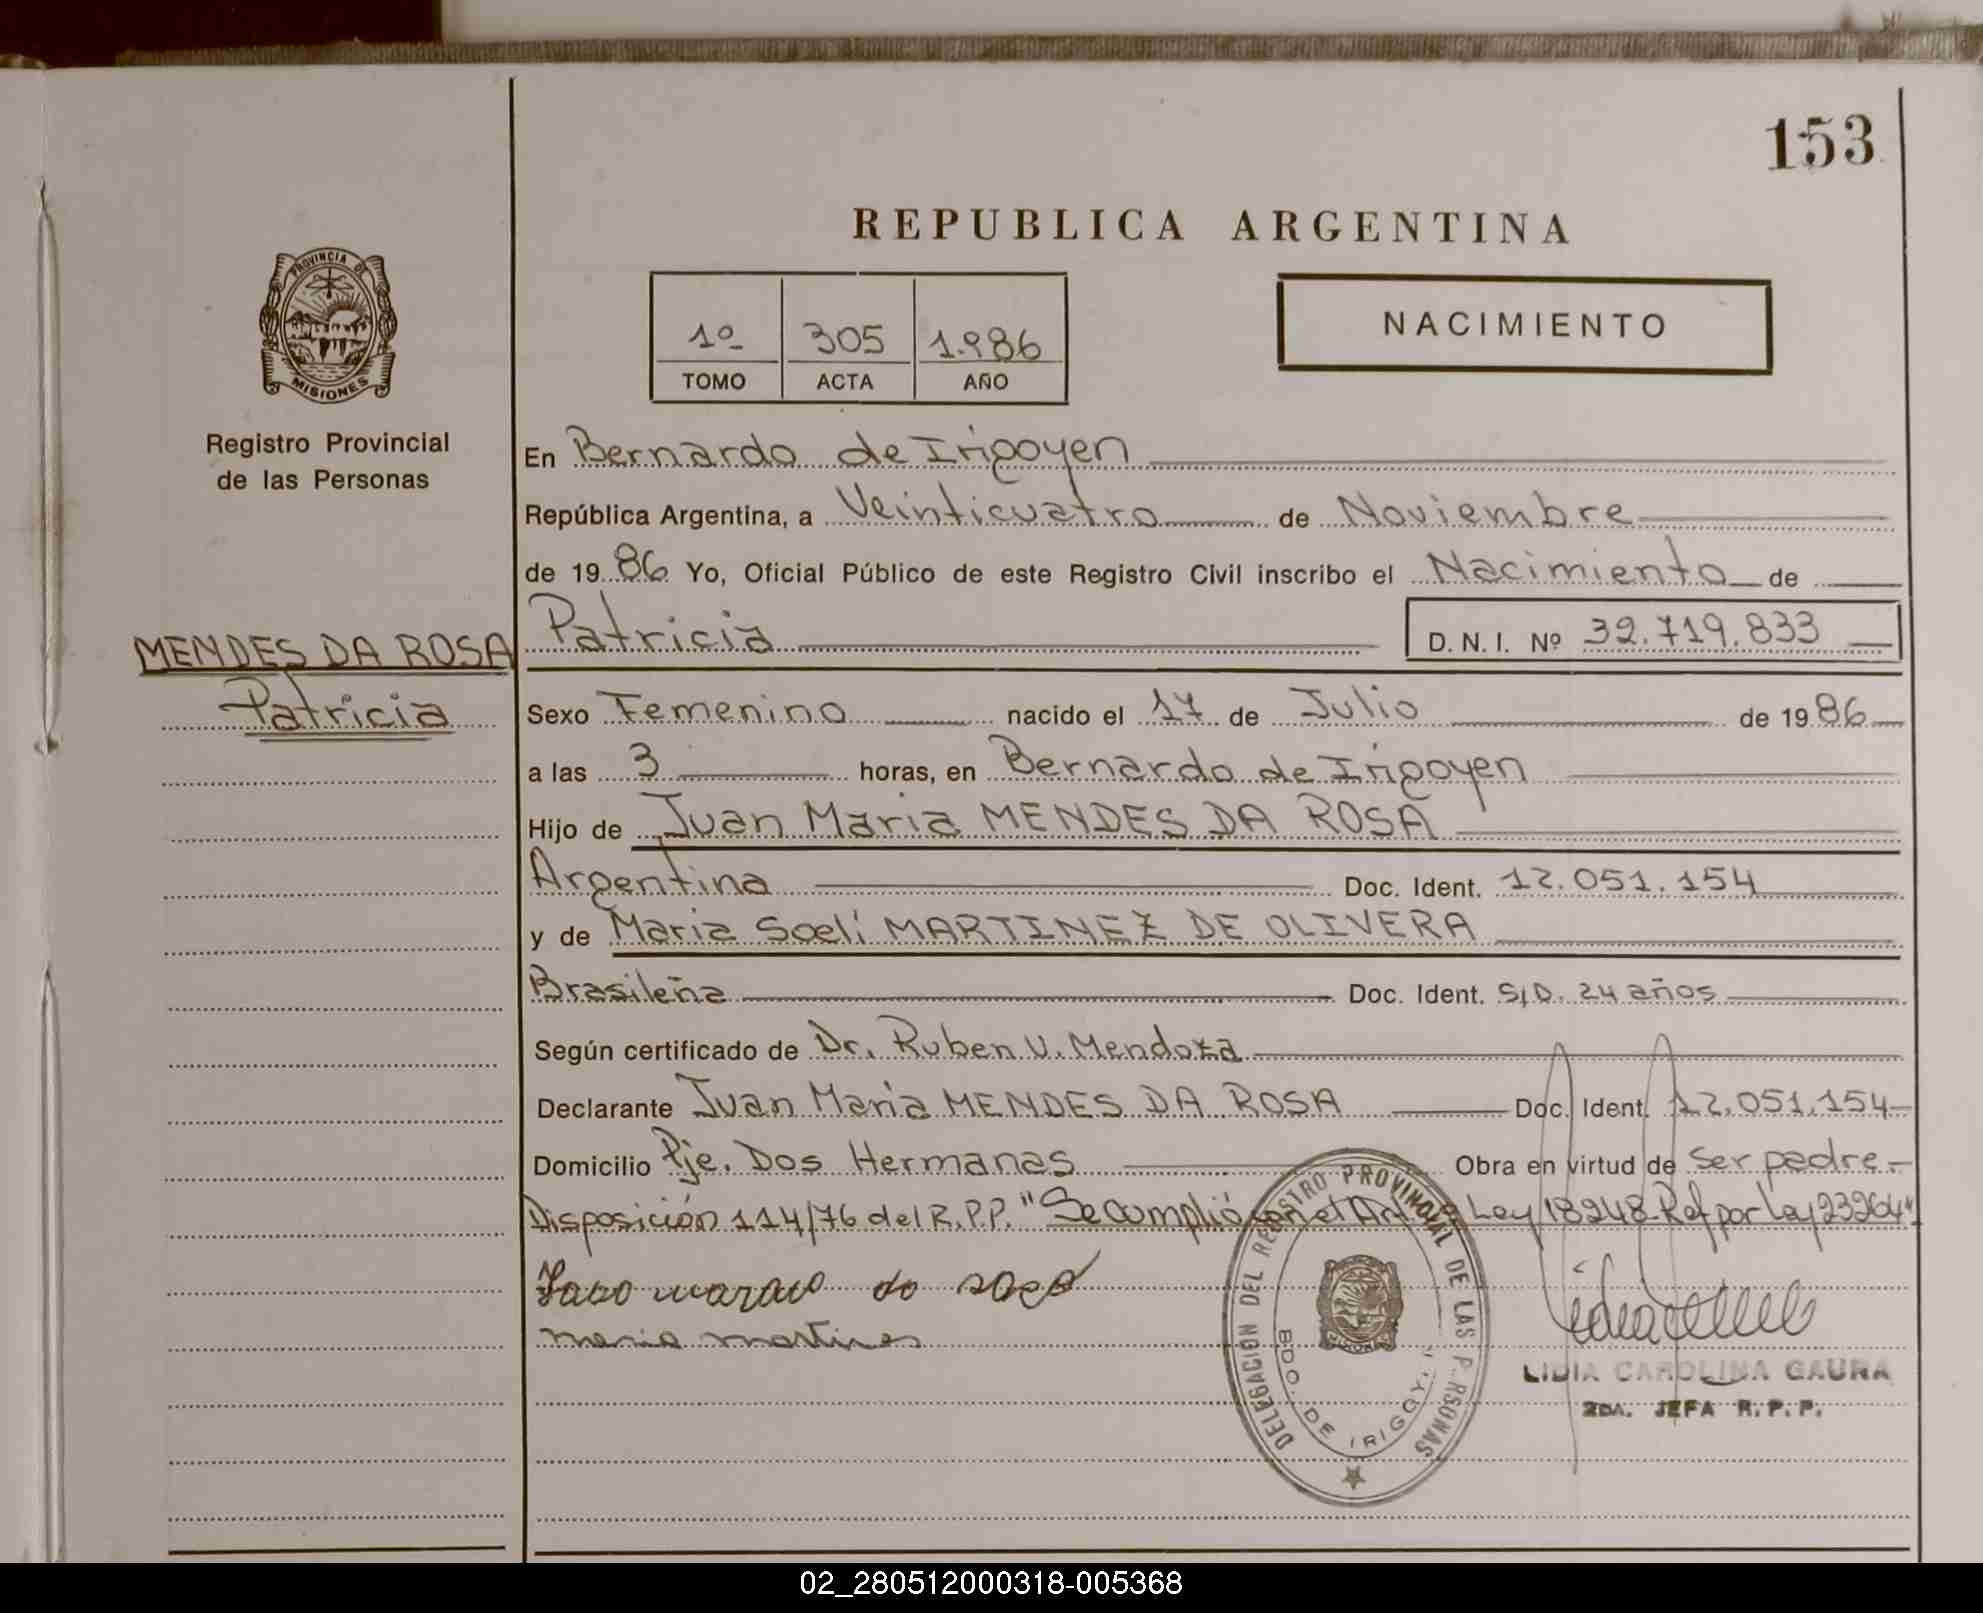 153
REPUBLICA ARGENTINA
PROVINCIA DE
MISIONES
Registro Provincial
de las Personas
1º 305 1.986
TOMO ACTA AÑO
NACIMIENTO
En Bernardo de Irigoyen
República Argentina, a Veinticuatro de Noviembre
de 19 86 Yo, Oficial Público de este Registro Civil inscribo el Nacimiento de
MENDES DA ROSA
Patricia
Patricia D. N. I. Nº 32.719.833
Sexo Femenino nacido el 17 de Julio de 19 86
a las 3 horas, en Bernardo de Irigoyen
Hijo de Juan Maria MENDES DA ROSA
Argentina Doc. Ident. 12.051.154
y de Maria Soeli MARTINEZ DE OLIVERA
Brasileña Doc. Ident. S/D. 24 años
Según certificado de Dr. Ruben V. Mendoza
Declarante Juan Maria MENDES DA ROSA Doc. Ident. 12.051.154
Domicilio Pje. Dos Hermanas Obra en virtud de ser padre.-
Disposición 114/76 del R.P.P. "Se cumplió con el Art Ley 18248-Ref por Ley 23264"
maria martines
DELEGACION DEL REGISTRO PROVINCIAL DE LAS P RSONAS
BDO. DE IRIGOY
LIDIA CAROLINA GAUNA
2DA. JEFA R.P.P.
02_280512000318-005368